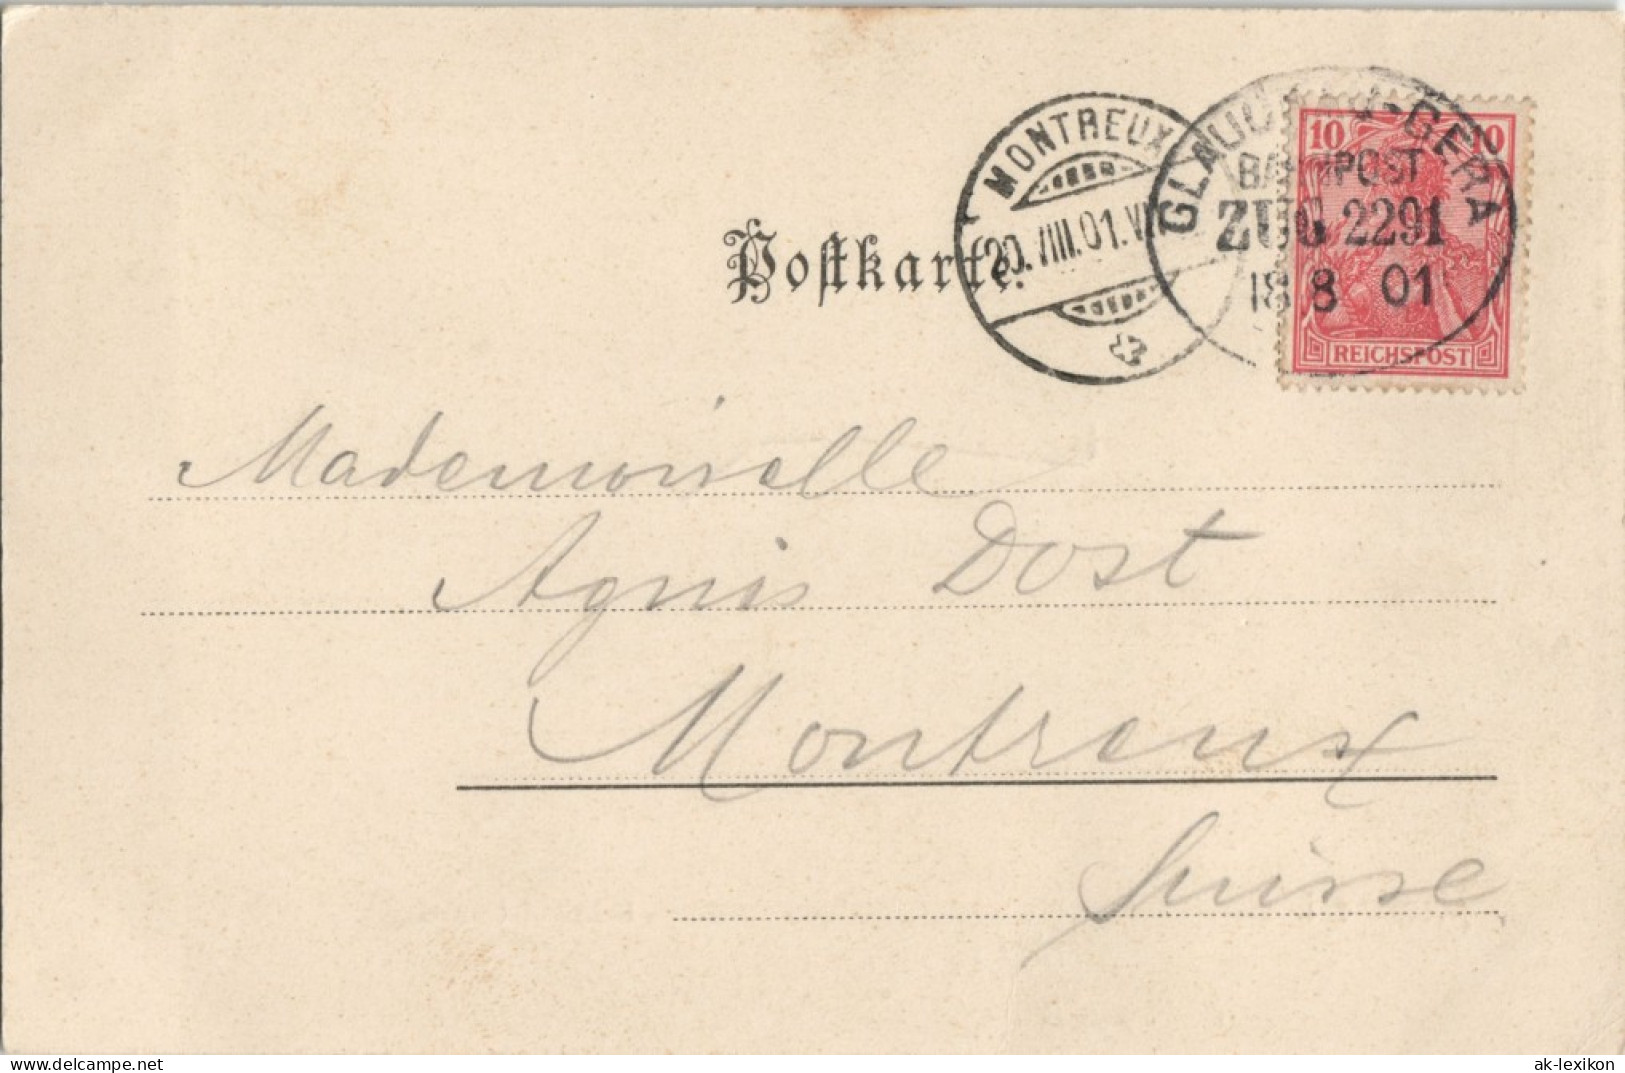 Postkarte.
MONTREUX
20.VIII.01.VI
GLAUCHAU-GERA
BAHNPOST
ZUG 2291
18 8 01
10 10
REICHSPOST
Mademoiselle
Agnis Dost
Montreux
Suisse
www.delcampe.net
ak-lexikon